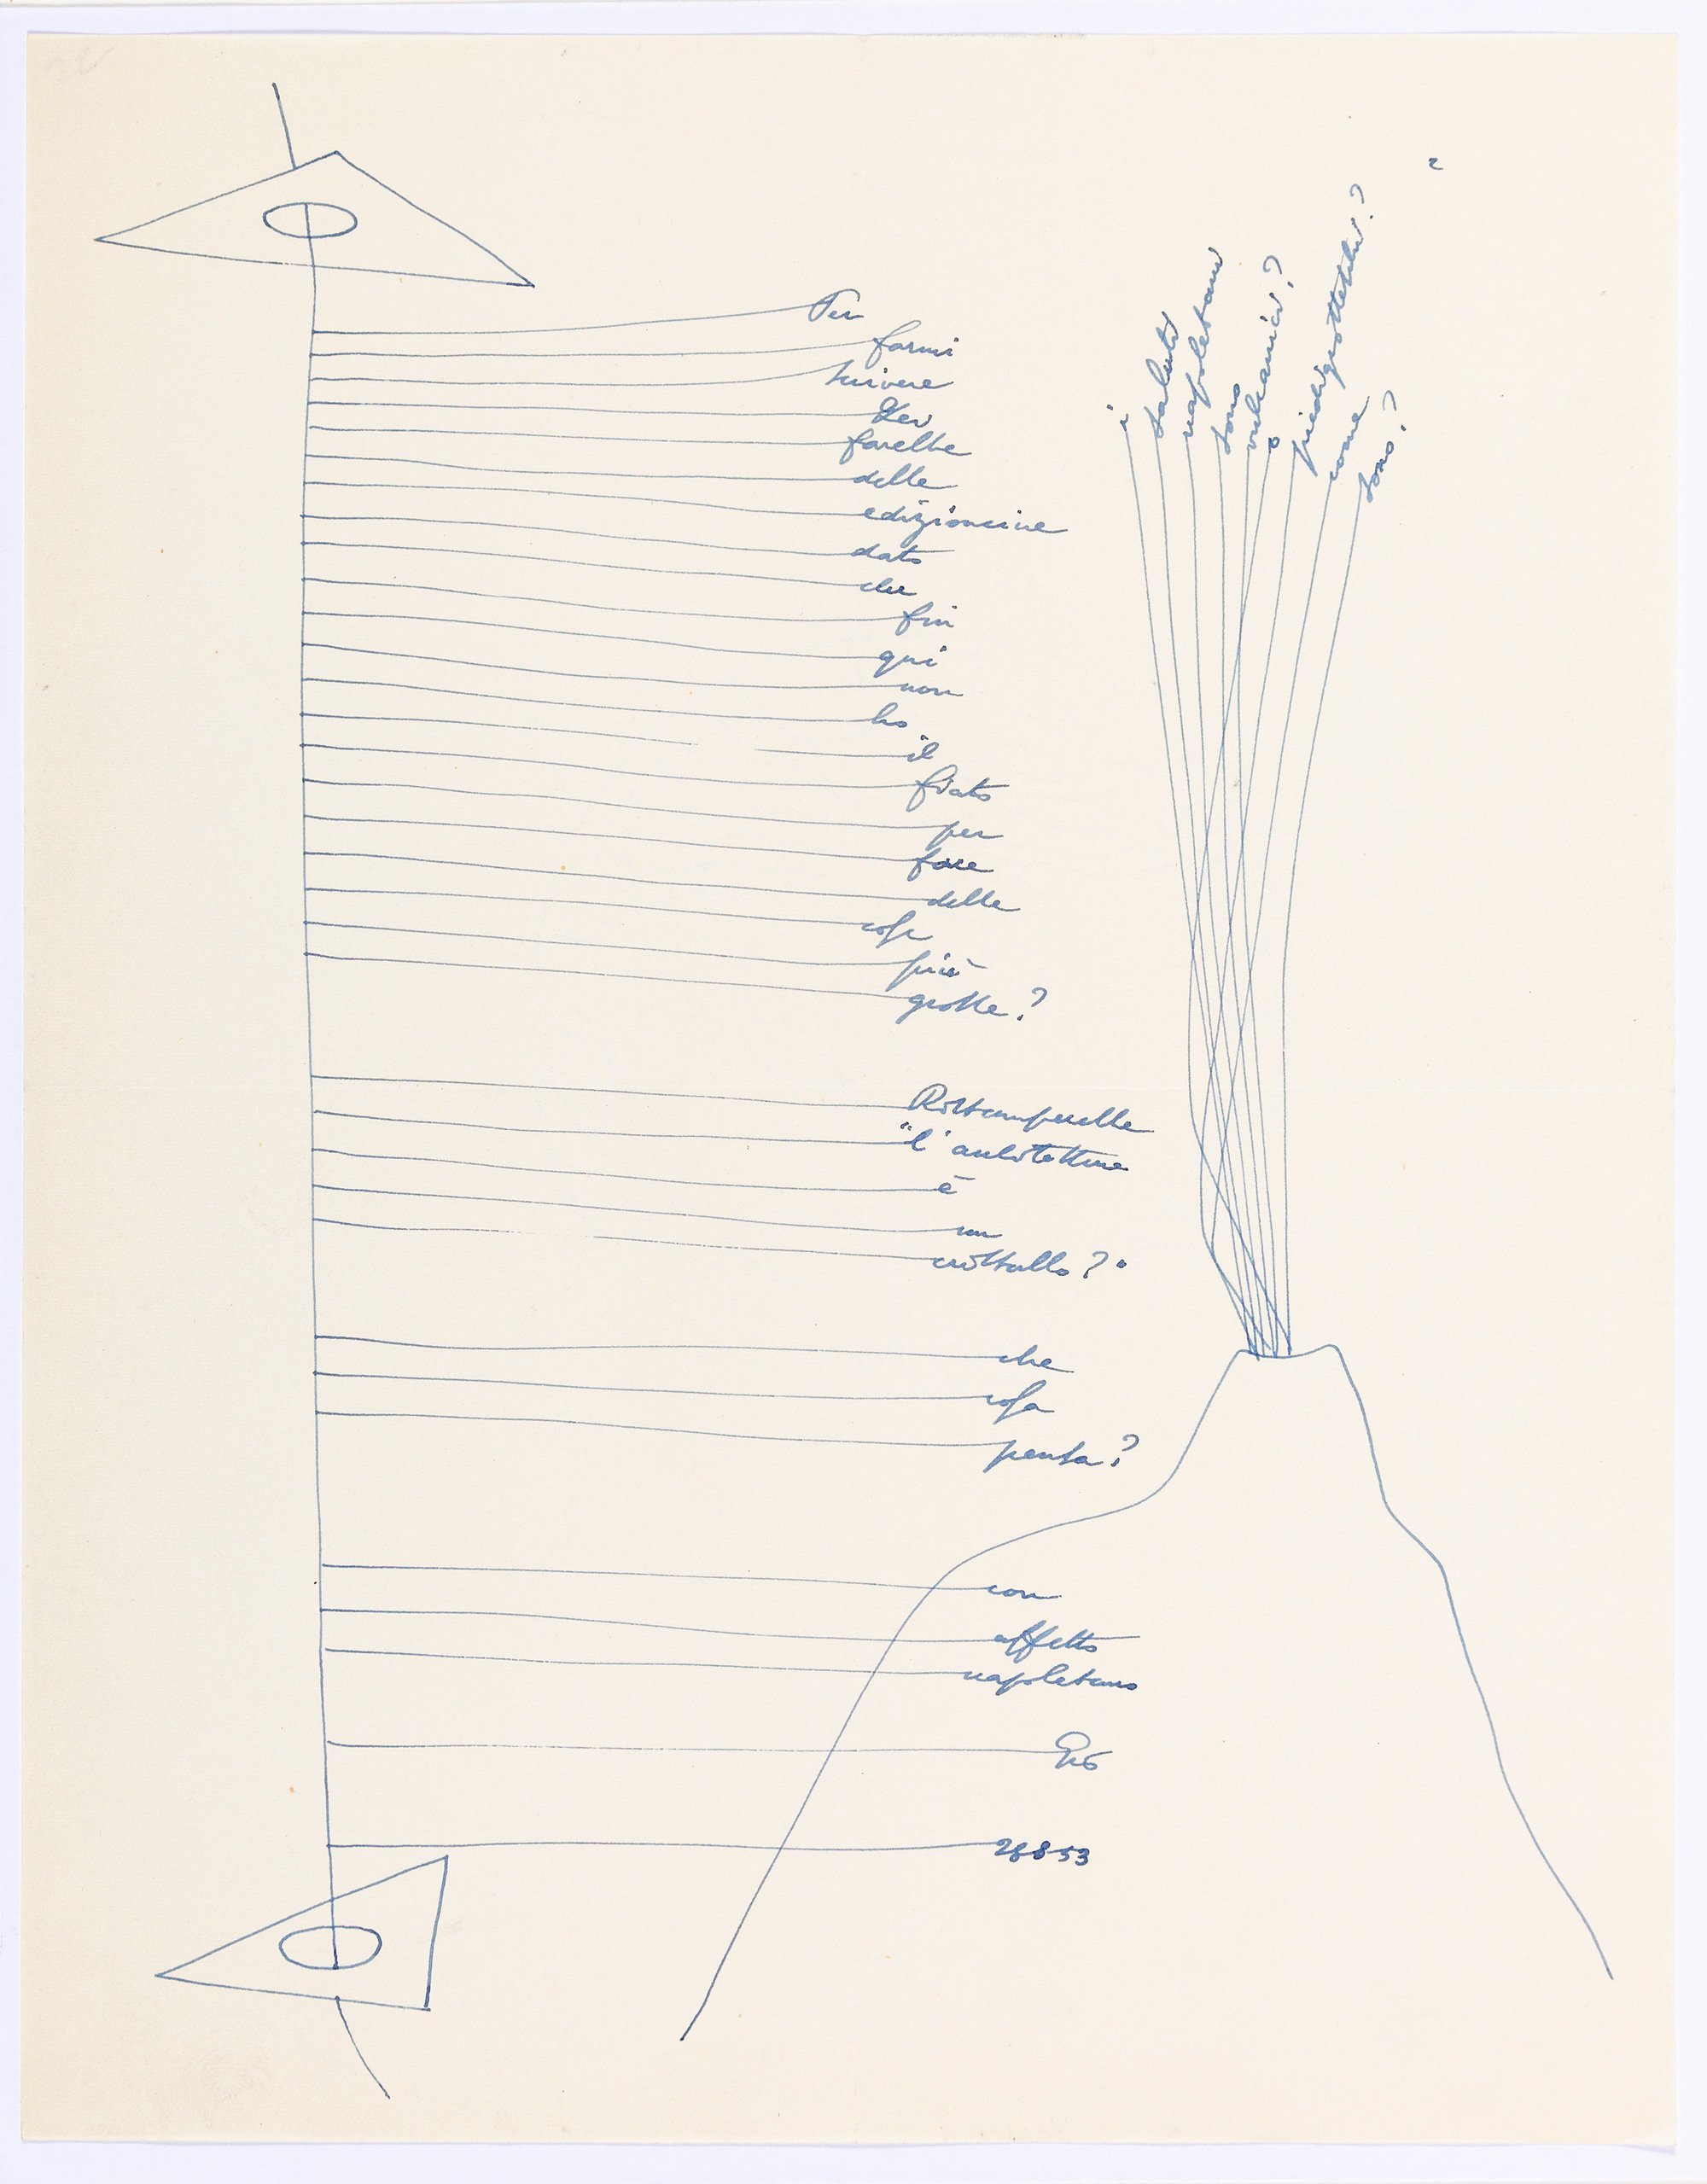 Per
farmi
scrivere
Lei
farebbe
delle
edizioncine
dato
che
fin
qui
non
ho
il
fiato
per
fare
delle
cose
più
grosse?
Ristamperebbe
"l'architettura
è
un
cristallo?"
che
cosa
pensa?
con
affetto
napoletano
Gio
28853
i
saluti
napoletani
sono
vulcanici?
o
piedigrotteschi?
come
sono?
2